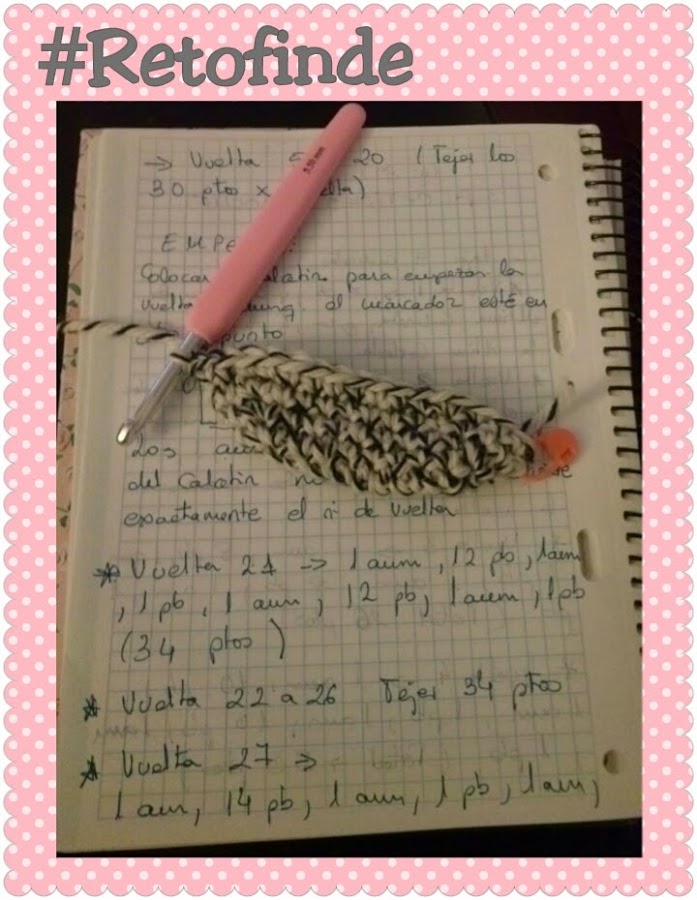 #Retofinde
5.50 mm
→ Vuelta 20 (Tejer los
30 ptos x
Colocar para empezar la
vuelta el marcador esté en
punto
Los
del Calcetin
exactamente el nº de vuelta
* Vuelta 21 → 1 aum, 12 pb, 1 aum
, 1 pb, 1 aum, 12 pb, 1 aum, 1 pb
(34 ptos)
* Vuelta 22 a 26 Tejer 34 ptos
* Vuelta 27 →
1 aum, 14 pb, 1 aum, 1 pb, 1 aum,